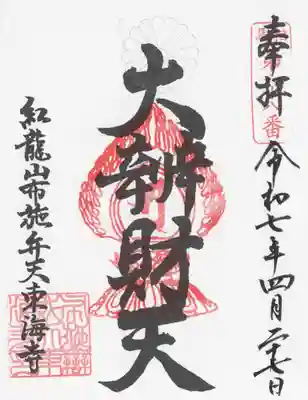 奉拝
令和七年四月二七日
大辨財天
紅龍山布施弁天東海寺